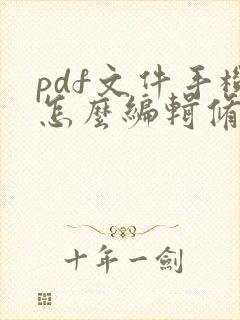 pdf文件手機
怎麼編輯修
十年一劍